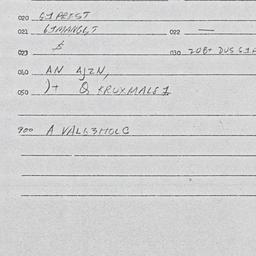 020 G1PREST
021 61MANGGT 022 —
023 $ 030 20B+ DUS G1F
040 AN AJZN,
050 )+ Q KRUXMALE1
900 A VALG3MOLC